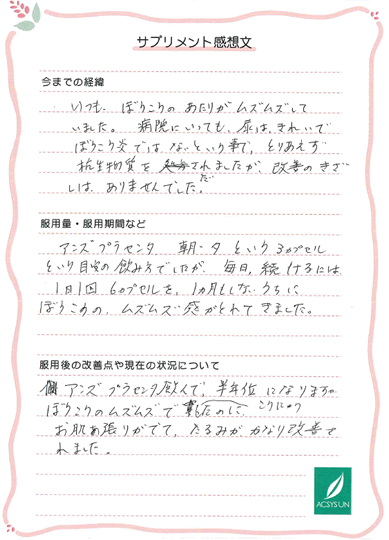 サプリメント感想文
今までの経緯
いつも、ぼうこうの あたりが ムズムズして
いました。病院にいっても、尿は、きれいで
ぼうこう炎では ないという事で、とりあえず
抗生物質を だされましたが、改善のきざ
しは、ありませんでした。
服用量・服用期間など
アンズプラセンタ 朝・夕 という 3カプセル
という目安の飲み方でしたが、毎日、続けるには
1日1回 6カプセルを、1カ月もしないうちに
ぼうこうの、ムズムズ感がとれてきました。
服用後の改善点や現在の状況について
アンズ プラセンタ飲んで、半年位 になりますが
ぼうこうのムズムズで のに、
お肌も張りがでて、たるみが かなり改善さ
れました。
ACSYSUN